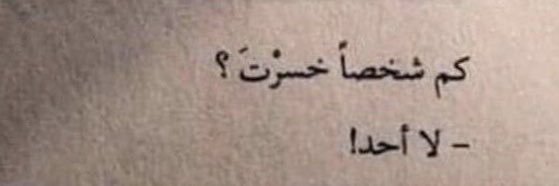 كم شخصاً خسرْتَ ؟
– لا أحد!